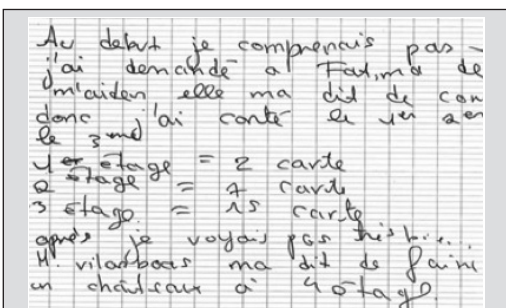 Au debut je comprenais pas
j'ai demandé a Fatima de
m'aider elle ma dit de con
donc j'ai conté le 1er 2em
le 3me
1er étage = 2 carte
2 étage = 7 carte
3 étage = 15 carte
après je voyais pas très b...
M. vilasboas ma dit de faire
un château a 4 étage